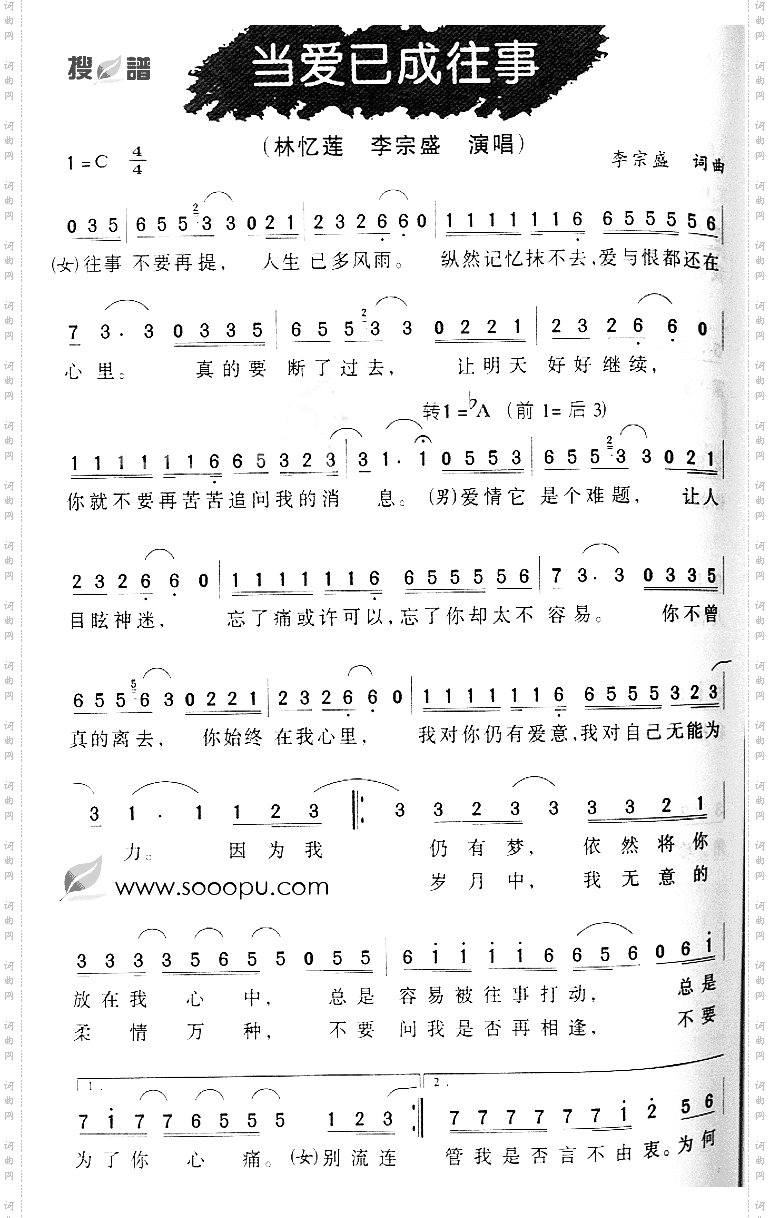 搜 譜
当爱已成往事
(林忆莲 李宗盛 演唱)
1=C 4/4
李宗盛 词曲
0 3 5 | 6 5 5 2 3 3 0 2 1 | 2 3 2 6 6 0 | 1 1 1 1 1 1 6 6 5 5 5 5 6 |
(女)往事 不要再提, 人生 已多风雨。 纵然记忆抹不去,爱与恨都还在
7 3· 3 0 3 3 5 | 6 5 5 2 3 3 0 2 2 1 | 2 3 2 6 6 0
心里。 真的要 断了过去, 让明天 好好继续,
转1=♭A (前1=后3)
1 1 1 1 1 1 6 6 5 3 2 3 | 3 1· 1 0 5 5 3 | 6 5 5 2 3 3 0 2 1
你就不要再苦苦追问我的消 息。 (男)爱情它 是个难题, 让人
2 3 2 6 6 0 | 1 1 1 1 1 1 6 6 5 5 5 5 6 | 7 3· 3 0 3 3 5
目眩神迷, 忘了痛或许可以,忘了你却太不 容易。 你不曾
6 5 5 5 6 3 0 2 2 1 | 2 3 2 6 6 0 | 1 1 1 1 1 1 6 6 5 5 5 3 2 3
真的离去, 你始终 在我心里, 我对你仍有爱意,我对自己无能为
3 1· 1 1 2 3 ‖: 3 3 2 3 3 3 3 2 1
力。 因为我 仍有梦, 依然将你
www.sooopu.com 岁月中, 我无意的
3 3 3 3 5 6 5 5 0 5 5 | 6 1 1 1 1 6 6 5 6 0 6 1
放在我 心 中, 总是 容易被往事打动, 总是
柔 情 万 种, 不要 问我是否再相逢, 不要
1. 2.
7 1 7 7 6 5 5 5 1 2 3 :‖ 7 7 7 7 7 7 1 2 5 6
为了你 心 痛。(女)别流连 管我是否言不由衷。为何